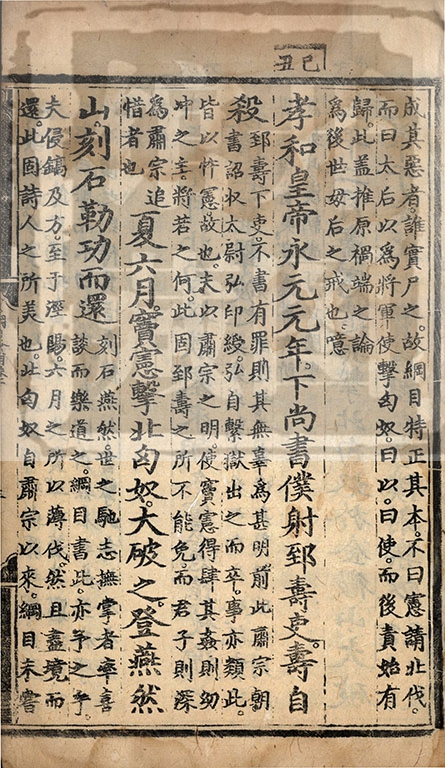 己丑
成其惡者。誰實尸之。故綱目特正其本。不曰憲請北伐。
而曰太后以爲將軍使擊匈奴。曰以。曰使。而後責始有
歸。此蓋推原禍端之論
爲後世母后之戒也。噫
孝和皇帝永元元年。下尚書僕射郅壽吏。壽自
殺
郅壽下吏。不書有罪則其無辜爲甚明。前此肅宗朝
書詔收太尉弘印綬。弘自繫獄出之而卒。事亦類此。
皆以忤憲故也。夫以肅宗之明。使竇憲得肆其姦則幼
冲之主將若之何。此固郅壽之所不能免。而君子則深
爲肅宗追
惜者也
夏六月。竇憲擊北匈奴。大破之。登燕然
山刻石勒功而還
刻石燕然。世之馳志撫掌者。率喜
談而樂道之。綱目書此。亦予之乎
夫侵鎬及方。至于涇陽。六月之所以薄伐。然且盡境而
還。此固詩人之所美也。北匈奴自肅宗以來。綱目未書